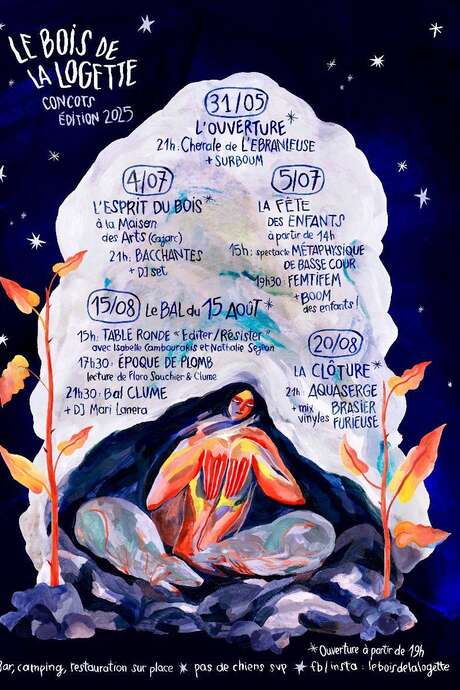 LE BOIS DE
LA LOGETTE
CONCOTS
ÉDITION 2025
31/05
L'OUVERTURE*
21h: Chorale de L'EBRANLEUSE
+ SURBOUM
4/07
L'ESPRIT DU BOIS*
à la Maison
des Arts (Cajarc)
21h: BACCHANTES
+ DJ set
5/07
LA FÊTE
DES ENFANTS
à partir de 14h
15h: spectacle MÉTAPHYSIQUE
DE BASSE COUR
19h30: FEMTIFEM
+ BOOM
des enfants!
15/08 Le BAL du 15 AOÛT*
15h: TABLE RONDE "Editer/Résister"
avec Isabelle Cambourakis et Nathalie
17h30: ÉPOQUE DE PLOMB
lecture de Flora Souchier & Clume
21h30: Bal CLUME
+ DJ Mari Lanera
20/08
LA CLÔTURE*
21h: AQUASERGE
+ mix BRASIER
vinyles FURIEUSE
*Ouverture à partir de 19h
Bar, camping, restauration sur place * pas de chiens svp * fb/insta: leboisdelalogette